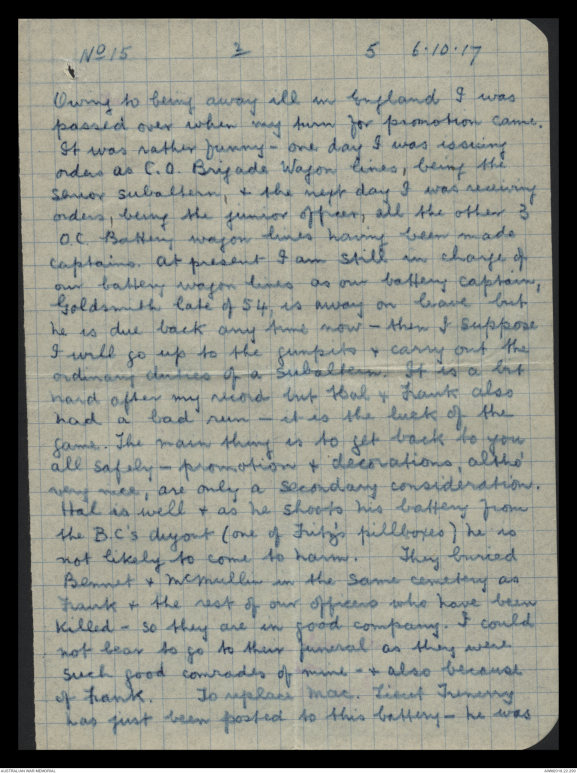 No 15 3 5 6.10.17
Owing to being away ill in England I was
passed over when my turn for promotion came.
It was rather funny - one day I was issuing
orders as C.O. Brigade Wagon lines, being the
senior subaltern, & the next day I was receiving
orders, being the junior officer, all the other 3
O.C. Battery wagon lines having been made
captains. At present I am still in charge of
our battery wagon lines as our battery captain,
Goldsmith late of 54, is away on leave but
he is due back any time now - then I suppose
I will go up to the gunpits & carry out the
ordinary duties of a subaltern. It is a bit
hard after my record but Hal & Frank also
had a bad run - it is the luck of the
game. The main thing is to get back to you
all safely - promotion & decorations, altho'
very nice, are only a secondary consideration.
Hal is well & as he shoots his battery from
the B.C's dugout (one of Fritz's pillboxes) he is
not likely to come to harm. They buried
Bennet & McMullin in the same cemetery as
Frank & the rest of our officers who have been
killed - so they are in good company. I could
not bear to go to their funeral as they were
such good comrades of mine - & also because
of Frank. To replace Mac. Lieut Trenerry
has just been posted to this battery - he was
AUSTRALIAN WAR MEMORIAL